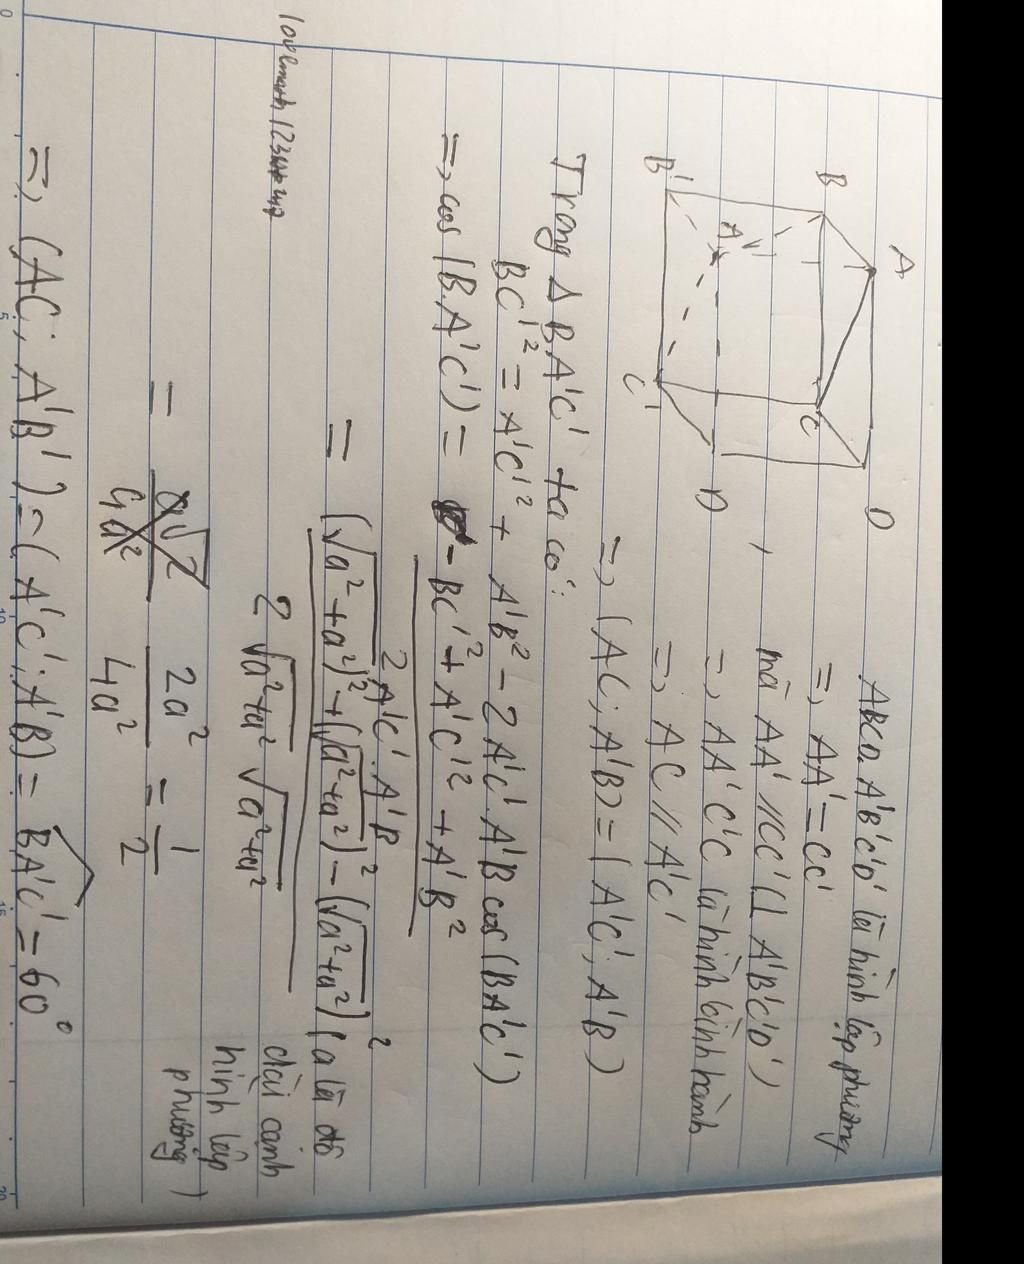 A
D
B
C
A'
D
B'
C'
ABCD.A'B'C'D' là hình lập phương
=> AA' = CC'
mà AA' // CC' (⊥ A'B'C'D')
=> AA'C'C là hình bình hành
=> AC // A'C'
=> (AC; A'B) = (A'C'; A'B)
Trong Δ BA'C' ta có:
BC'² = A'C'² + A'B² - 2A'C'.A'B cos(BA'C')
=> cos (B.A'C') = - BC'² + A'C'² + A'B²
2A'C'.A'B
= (√a²+a²)² + (√a²+a²)² - (√a²+a²)² (a là độ
2 √a²+a² √a²+a² dài cạnh
hình lập
phương)
lovemath
= 2a² / 4a² = 1/2
=> (AC; A'B') = (A'C'; A'B) = BA'C' = 60°